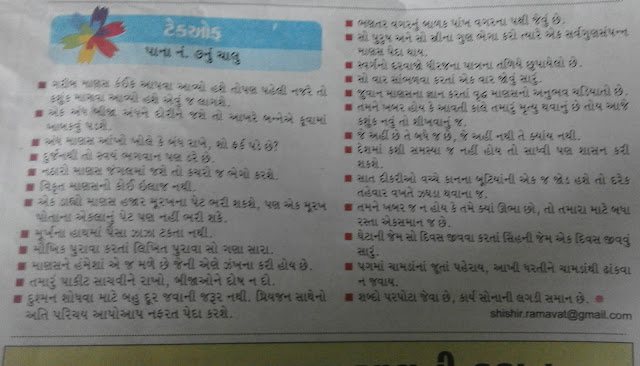 ટેકઓફ
પાના નં. ૭નું ચાલુ
■ ગરીબ માણસ કંઈક આપવા આવ્યો હશે તોપણ પહેલી નજરે તો
કશુંક માગવા આવ્યો હશે એવું જ લાગશે.
■ એક અંધ બીજા અંધને દોરીને જશે તો આખરે બન્નેએ કૂવામાં
ખાબકવું પડશે.
■ અંધ માણસ આંખો ખોલે કે બંધ રાખે, શો ફર્ક પડે છે?
■ દુર્જનથી તો સ્વયં ભગવાન પણ ડરે છે.
■ નઠારો માણસ જંગલમાં જશે તો કચરો જ ભેગો કરશે.
■ વિકૃત માણસનો કોઈ ઈલાજ નથી.
■ એક ડાહ્યો માણસ હજાર મૂરખના પેટ ભરી શકશે, પણ એક મૂરખ
પોતાના એકલાનું પેટ પણ નહીં ભરી શકે.
■ મૂર્ખના હાથમાં પૈસા ઝાઝા ટકતા નથી.
■ મૌખિક પુરાવા કરતાં લિખિત પુરાવા સો ગણા સારા.
■ માણસને હંમેશાં એ જ મળે છે જેની એણે ઝંખના કરી હોય છે.
■ તમારું પાકીટ સાચવીને રાખો, બીજાઓને દોષ ન દો.
■ દુશ્મન શોધવા માટે બહુ દૂર જવાની જરૂર નથી. પ્રિયજન સાથેનો
અતિ પરિચય આપોઆપ નફરત પેદા કરશે.
■ ભણતર વગરનું બાળક પાંખ વગરના પક્ષી જેવું છે.
■ સો પુરુષ અને સો સ્ત્રીના ગુણ ભેગા કરો ત્યારે એક સર્વગુણસંપન્ન
માણસ પેદા થાય.
■ સ્વર્ગનો દરવાજો ધીરજના પાત્રના તળિયે છુપાયેલો છે.
■ સો વાર સાંભળવા કરતાં એક વાર જોવું સારું.
■ જુવાન માણસના જ્ઞાન કરતાં વૃદ્ધ માણસનો અનુભવ ચડિયાતો છે.
■ તમને ખબર હોય કે આવતી કાલે તમારું મૃત્યુ થવાનું છે તોય આજે
કશુંક નવું તો શીખવાનું જ.
■ જે અહીં છે તે બધે જ છે, જે અહીં નથી તે ક્યાંય નથી.
■ દેશમાં કશી સમસ્યા જ નહીં હોય તો સાધ્વી પણ શાસન કરી
શકશે.
■ સાત દીકરીઓ વચ્ચે કાનના બૂટિયાંની એક જ જોડ હશે તો દરેક
તહેવાર વખતે ઝઘડા થવાના જ.
■ તમને ખબર જ ન હોય કે તમે ક્યાં ઊભા છો, તો તમારા માટે બધા
રસ્તા એકસમાન જ છે.
■ ઘેટાની જેમ સો દિવસ જીવવા કરતાં સિંહની જેમ એક દિવસ જીવવું
સારું.
■ પગમાં ચામડાંનાં જૂતાં પહેરાય, આખી ધરતીને ચામડાંથી ઢાંકવા
ન જવાય.
■ શબ્દો પરપોટા જેવા છે, કાર્ય સોનાની લગડી સમાન છે.
shishir.ramavat@gmail.com